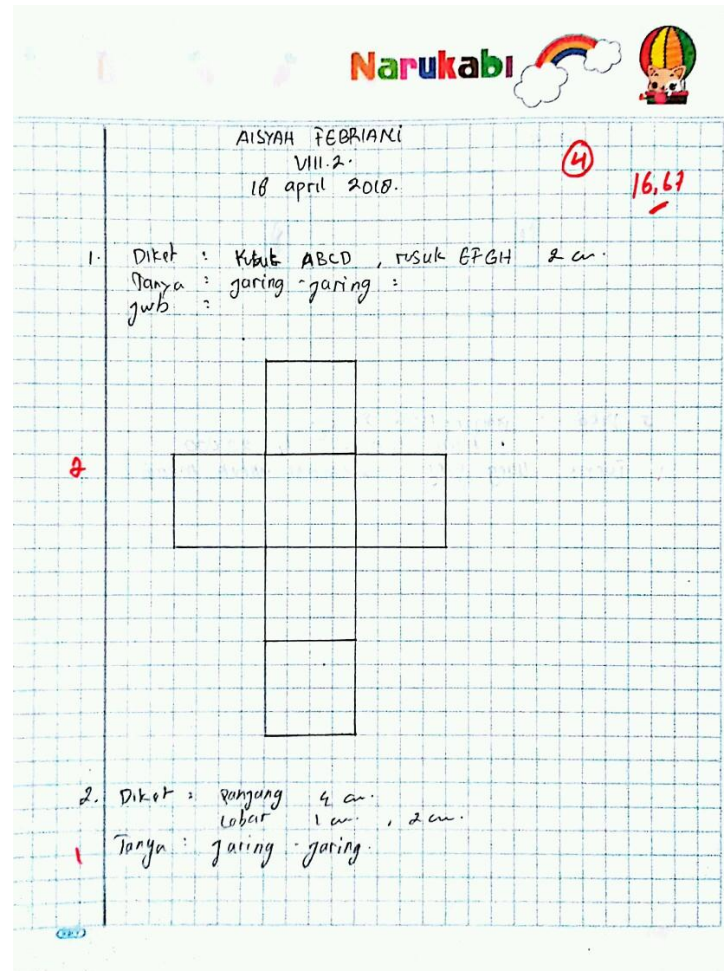 Narukabi
AISYAH FEBRIANI
VIII.2.
18 april 2018.
4
16,67
1. Diket : Kubuk ABCD , rusuk EFGH 2 cm.
Tanya : jaring - jaring :
Jwb :
2
2. Diket : Panjang 4 cm.
Lebar 1 cm. , 2 cm.
1 Tanya : Jaring - Jaring.